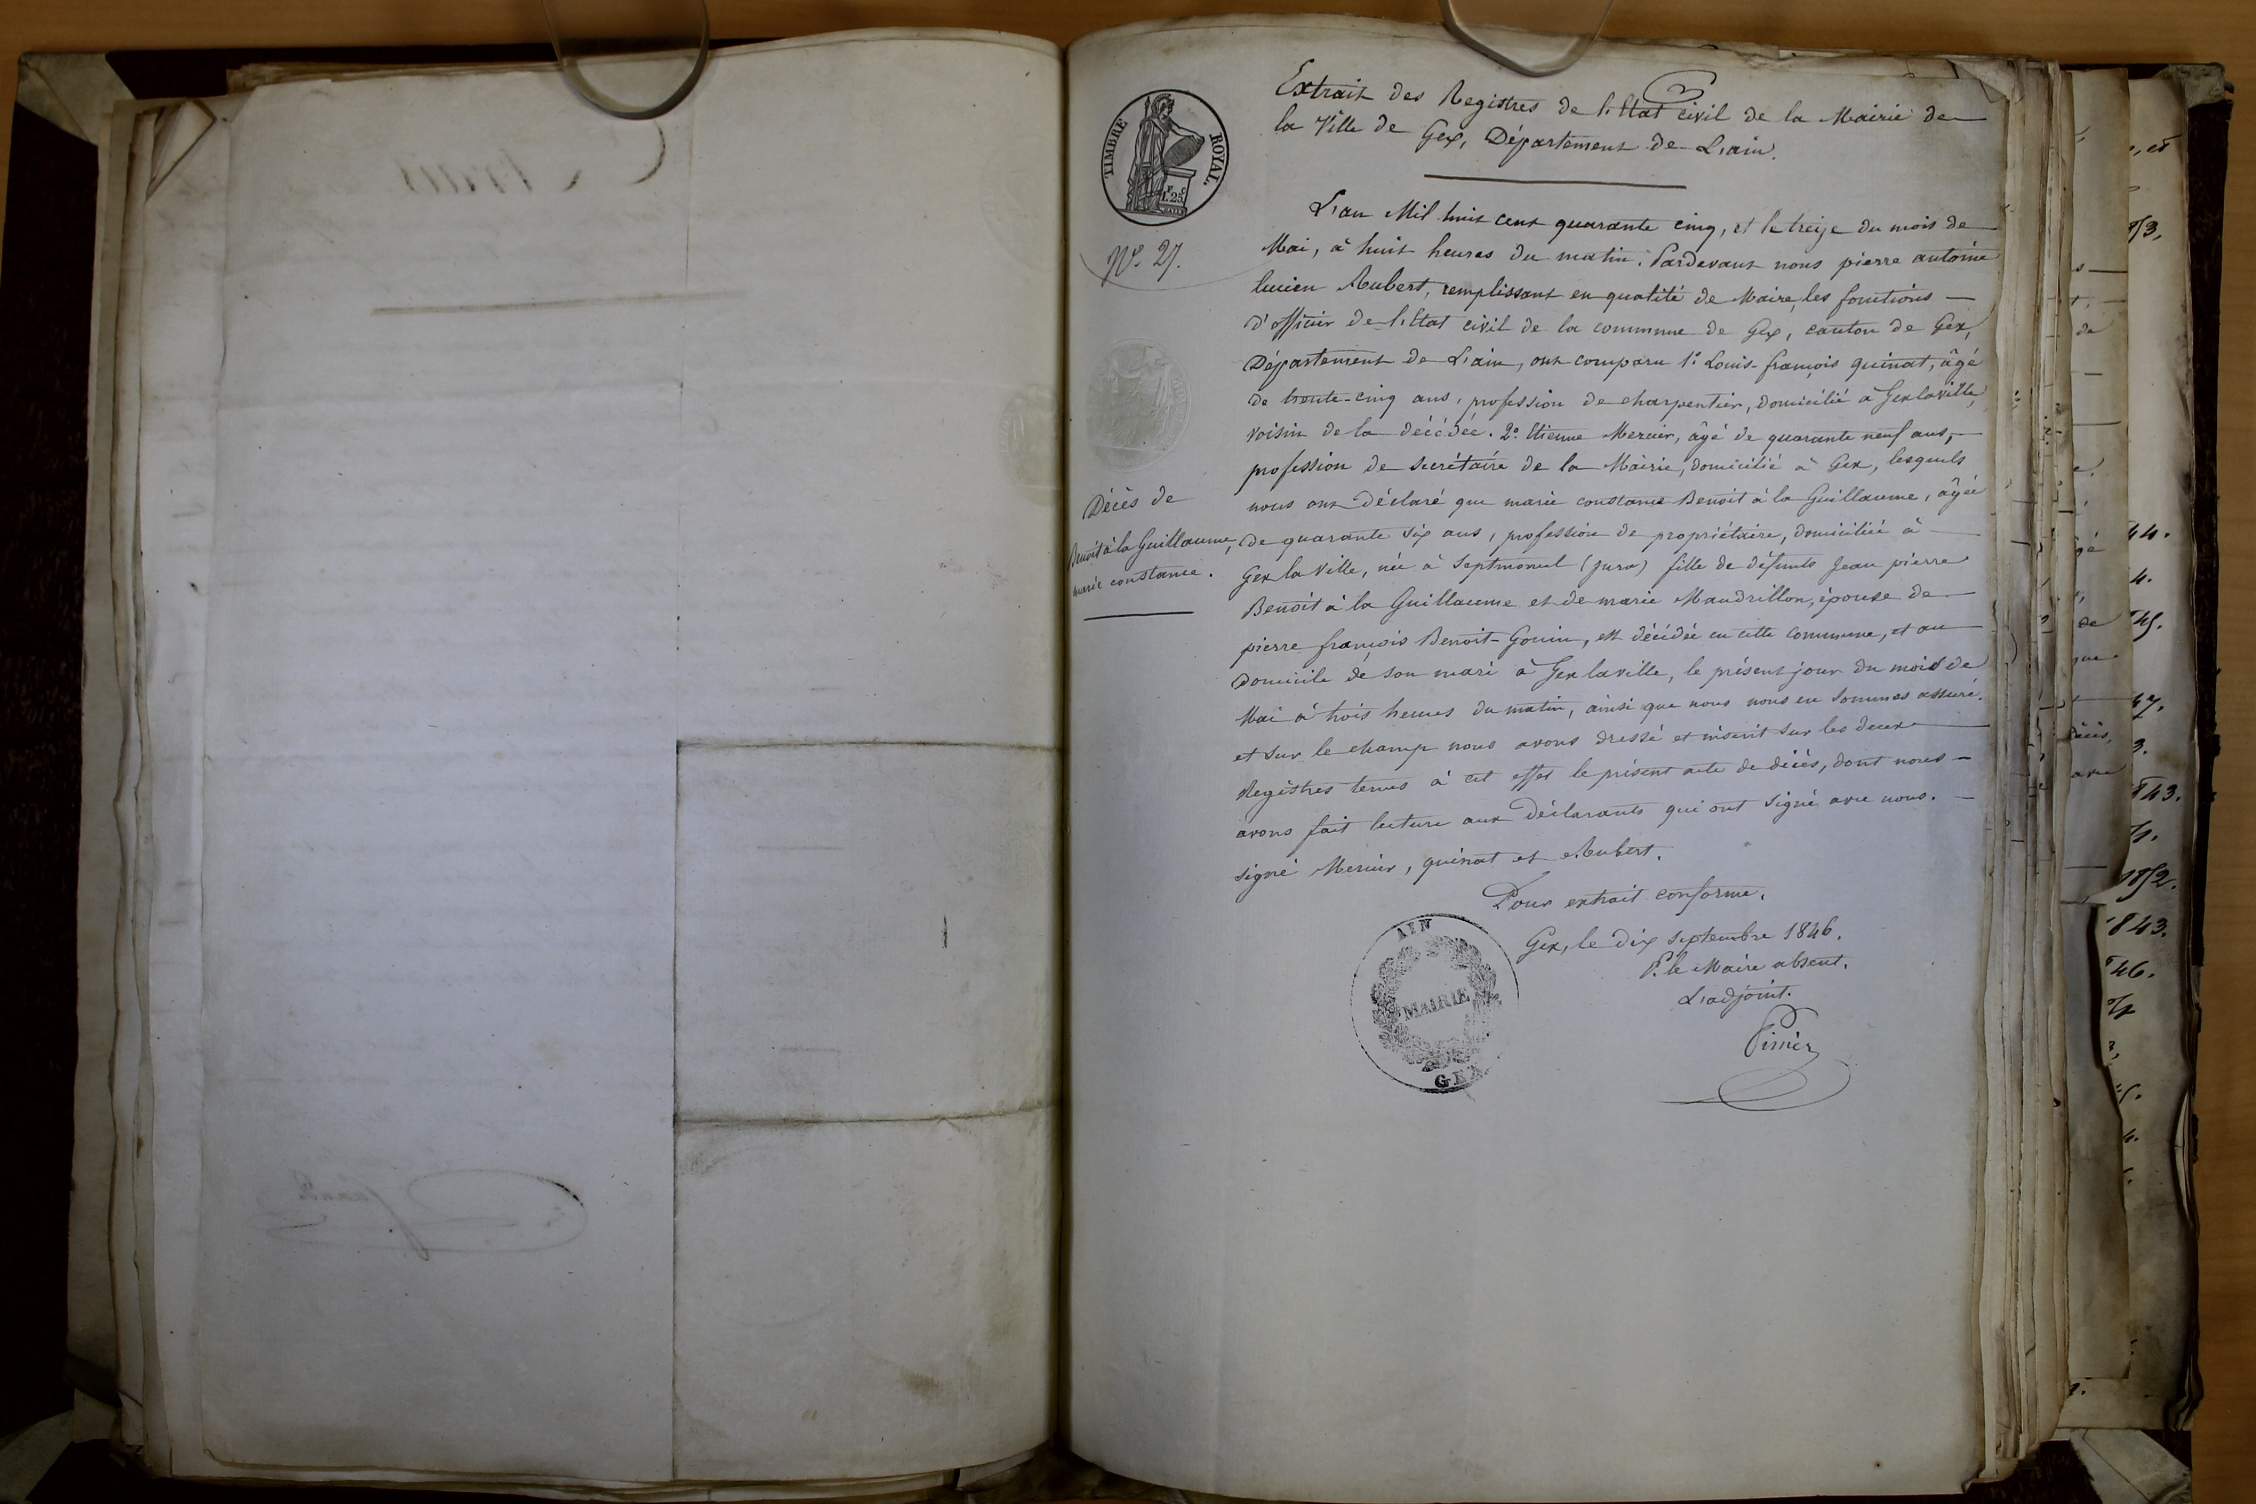 Extrait des Registres de l'Etat civil de la Mairie de
la Ville de Gex, Département de L'ain.
TIMBRE ROYAL.
1.F 25C
N.o 27.
L'an Mil huit cent quarante cinq, et le treize du mois de
Mai, à huit heures du matin. Pardevant nous pierre antoine
lucien Aubert, remplissant en qualité de Maire, les fonctions
d'officier de l'Etat civil de la commune de Gex, canton de Gex,
Département de L'ain, ont comparu 1.o Louis-françois quinat, âgé
de trente-cinq ans, profession de charpentier, domicilié à Gex la ville,
voisin de la décédée. 2.o Etienne Mercier, âgé de quarante neuf ans,
profession de secrétaire de la Mairie, domicilié à Gex, lesquels
nous ont déclaré que marie constance Benoit à la Guillaume, âgée
de quarante six ans, profession de propriétaire, domiciliée à
Gex la Ville, née à Septmoncel (jura) fille de défunts Jean pierre
Benoit à la Guillaume et de marie Mandrillon, épouse de
pierre françois Benoit-Gonin, est décédée en cette commune, et au
domicile de son mari à Gex la ville, le présent jour du mois de
Mai à trois heures du matin, ainsi que nous nous en sommes assuré.
et sur le champ nous avons dressé et inscrit sur les deux
Registres tenus à cet effet le présent acte de décès, dont nous
avons fait lecture aux Déclarants qui ont signé avec nous.
signé Mercier, quinat et Aubert.
Décès de
Benoit à la Guillaume,
marie constance.
Pour extrait conforme.
Gex, le dix septembre 1846.
P. le Maire absent.
L'adjoint.
AIN
MAIRIE
GEX